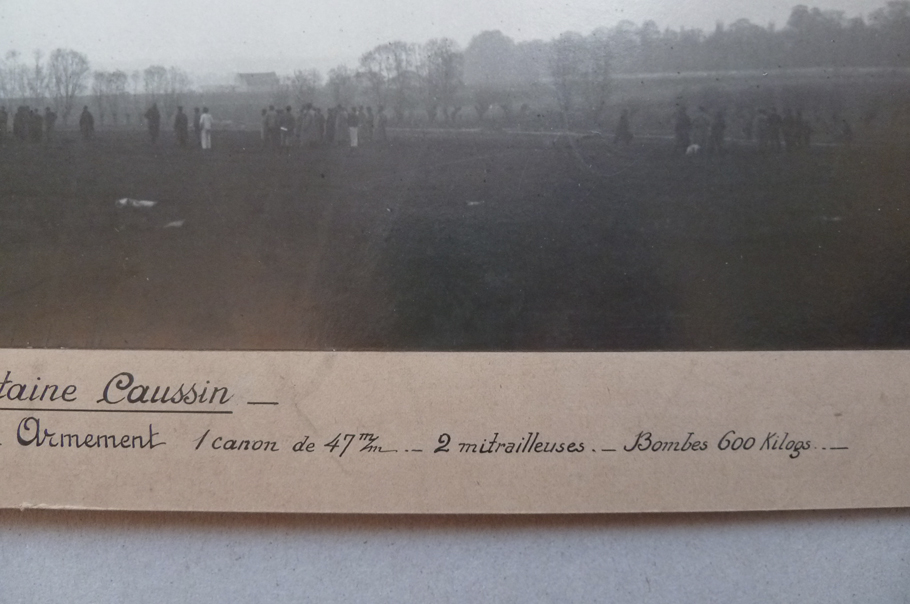 taine Caussin —
. Armement 1 canon de 47 m/m _.._ 2 mitrailleuses._ Bombes 600 Kilogs.._